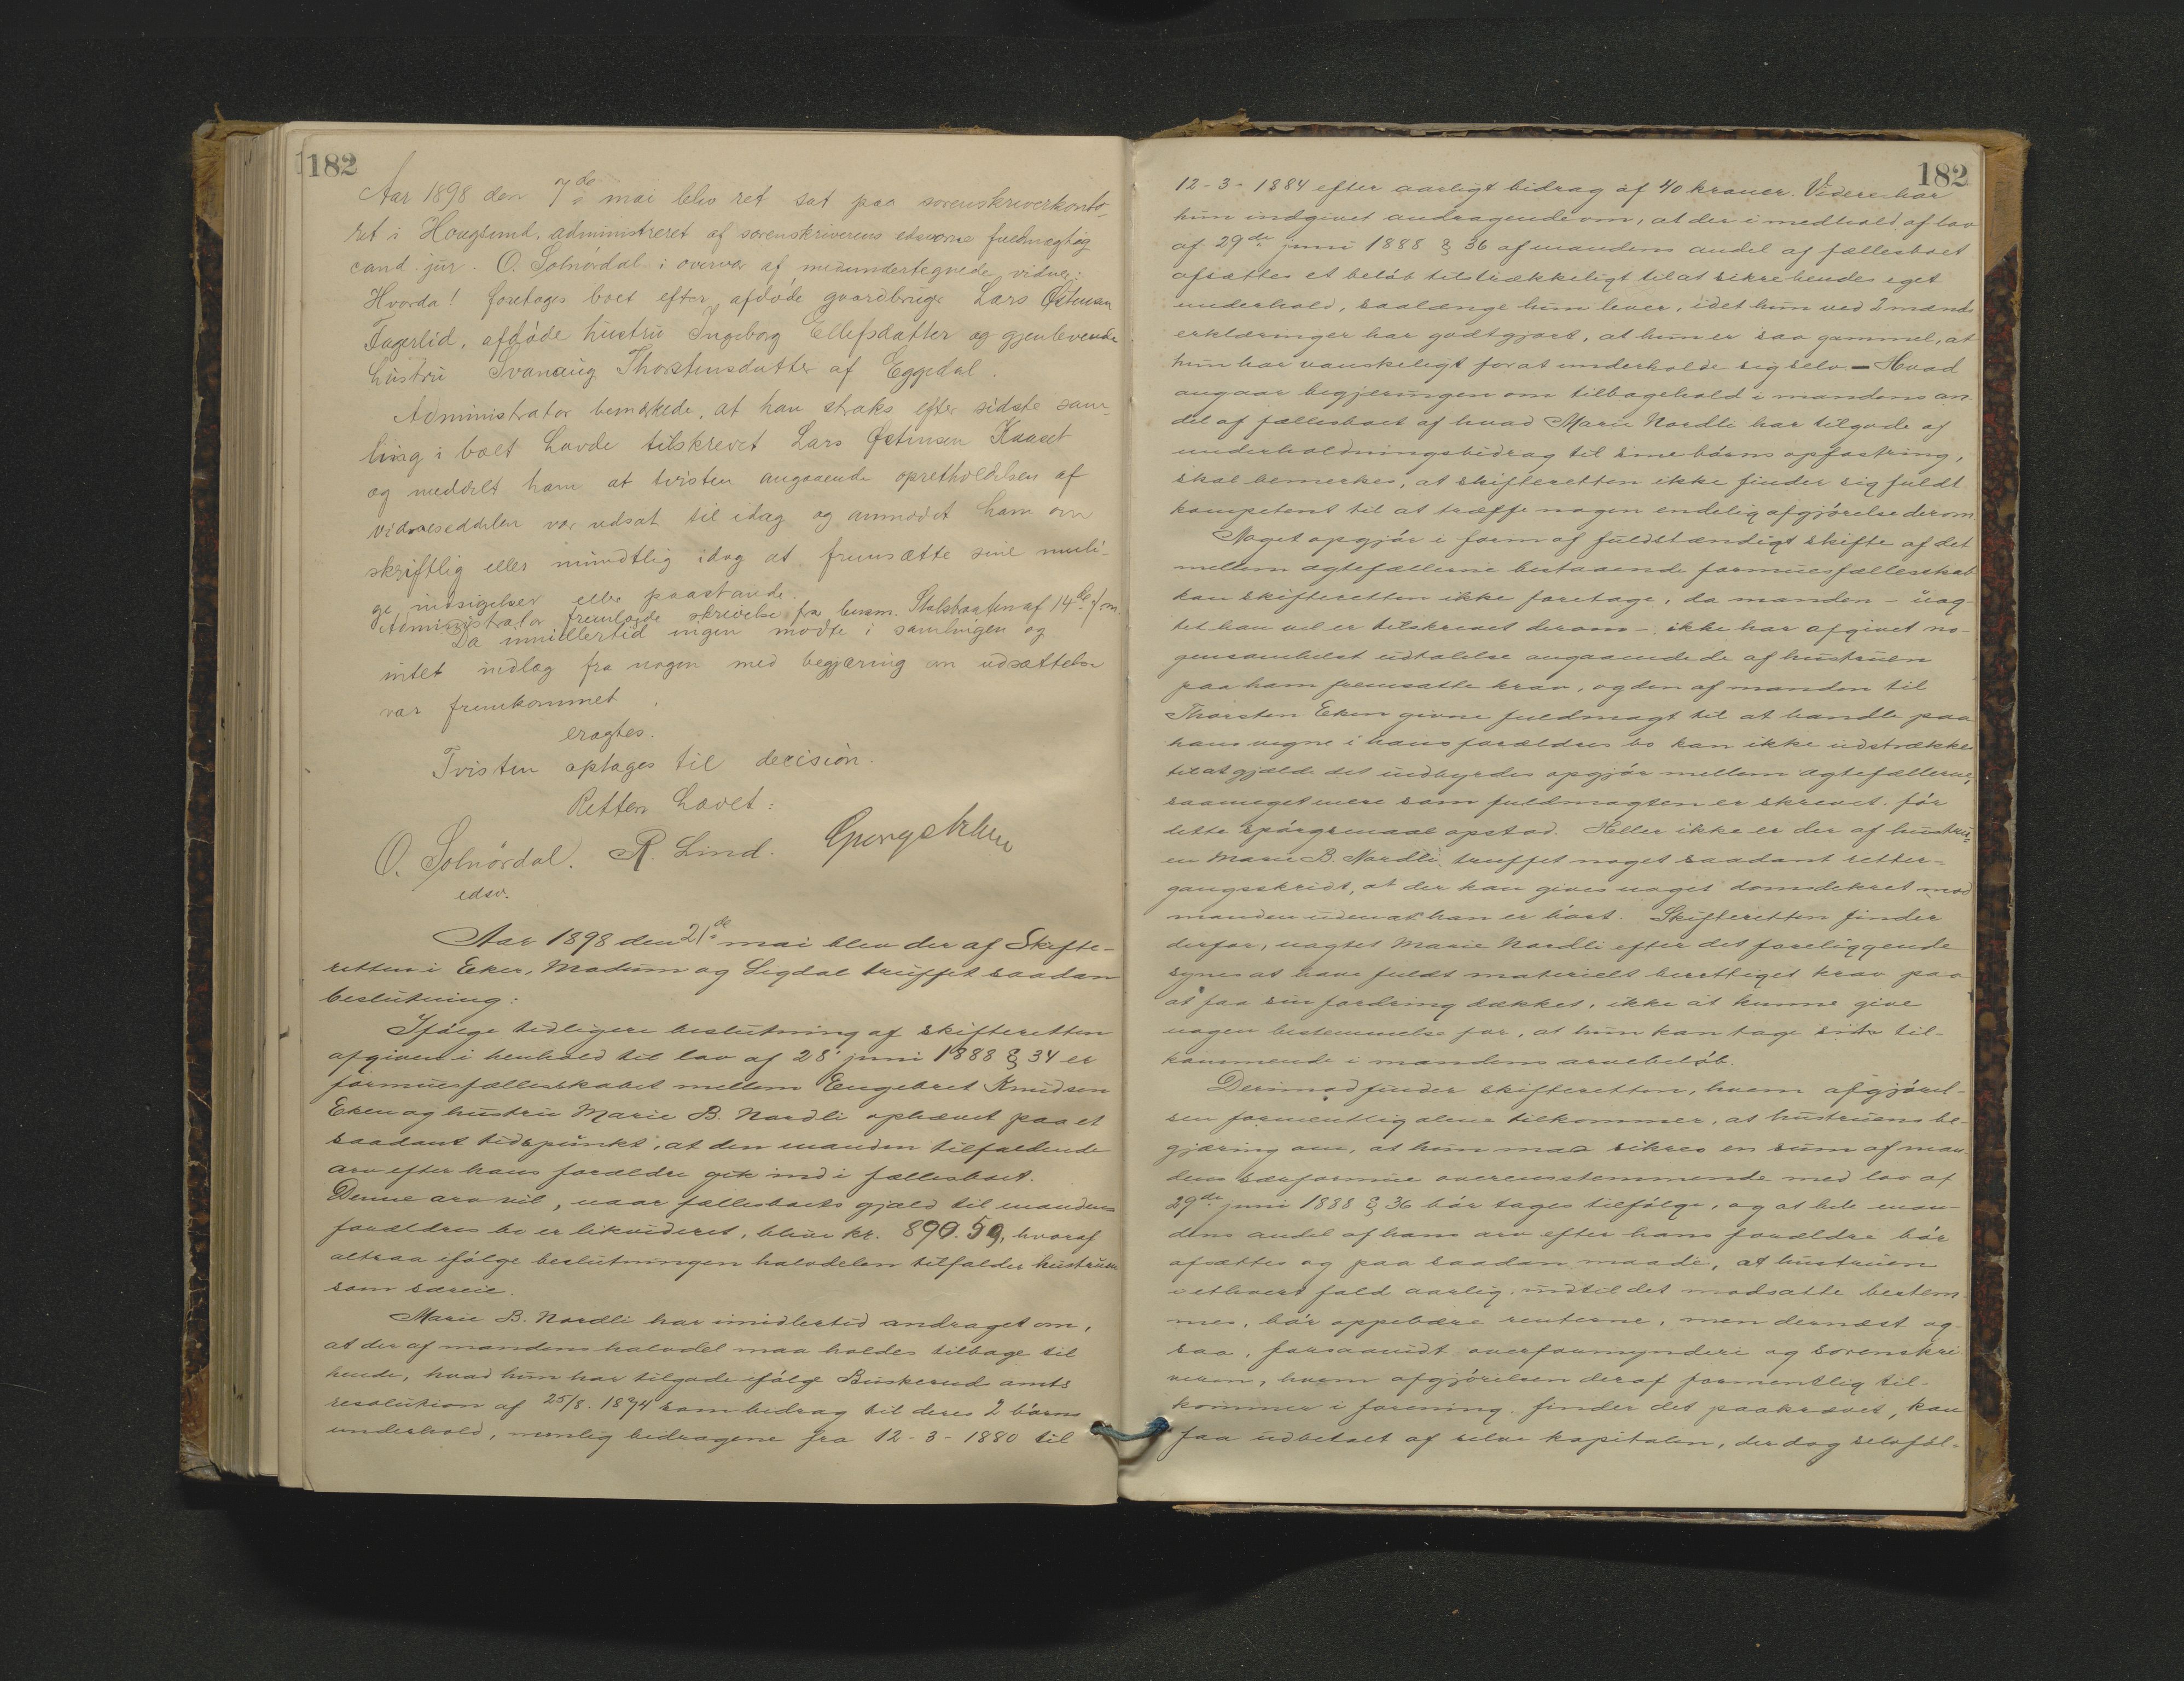 182
Aar 1898 den 7de mai blev ret sat paa sorenskriverkonto-
ret i Hougsund, administreret af sorenskriverens edsvorne fuldmægtig
cand. jur. O. Solnørdal i overvær af medundertegnede vidner:
Hvorda! foretoges boet efter afdøde gaardbruger Lars Østensen
Fagerlid, afdøde hustru Ingeborg Ellefsdatter og gjenlevende
hustru Svanaug Thorstensdatter af Eggedal.
Administrator bemærkede, at han straks efter sidste sam-
ling i boet havde tilskrevet Lars Østensen Kaaset
og meddelt ham at tvisten angaaende opretholdelsen af
vidneseddelen var udsat til idag og anmodet ham om
skriftlig eller mundtlig idag at fremsætte sine muli-
ge indsigelser eller paastande.
Administrator fremlagde skrivelse fra lensm. Stalsbraaten af 14de f. m.
Da imidlertid ingen mødte i samlingen og
intet indlæg fra nogen med begjæring om udsættelse
var fremkommet
eragtes.
Tvisten optages til decision.
Retten hævet:
O. Solnørdal. R. Lind.
edsv.
Aar 1898 den 21de mai blev der af Skifte-
retten i Eker, Modum og Sigdal truffet saadan
beslutning:
Ifølge tidligere beslutning af skifteretten
afgiven i henhold til lov af 28' juni 1888 § 34 er
formuesfællesskabet mellem Engebret Knudsen
Eken og hustru Marie B. Nordli ophævet paa et
saadant tidspunkt, at den manden tilfaldende
arv efter hans forældre gik ind i fællesboet.
Denne arv vil, naar fællesboets gjæld til mandens
forældres bo er likvideret, blive kr. 890.59, hvoraf
altsaa ifølge beslutningen halvdelen tilfalder hustruen
som særeie.
Marie B. Nordli har imidlertid andraget om,
at der af mandens halvdel maa holdes tilbage til
hende, hvad hun har tilgode ifølge Buskerud amts
resolution af 25/8. 1874 som bidrag til deres 2 børns
underhold, nemlig bidragene fra 12-3-1880 til
182
12-3-1884 efter aarligt bidrag af 40 kroner. Videre har
hun indgivet andragende om, at der i medhold af lov
af 29de juni 1888 § 36 af mandens andel af fællesboet
afsættes et beløb tilstrækkeligt til at sikre hendes eget
underhold, saalænge hun lever, idet hun ved 2 mænds
erklæringer har godtgjort, at hun er saa gammel, at
hun har vanskeligt for at underholde sig selv. — Hvad
angaar begjæringen om tilbagehold i mandens an-
del af fællesboet af hvad Marie Nordli har tilgode af
underholdningsbidrag til sine børns opfostring,
skal bemerkes, at skifteretten ikke finder sig fuldt
kompetent til at træffe nogen endelig afgjørelse derom.
Noget opgjør i form af fuldstændigt skifte af det
mellem ægtefællerne bestaaende formuesfællesskab
kan skifteretten ikke foretage, da manden – uag-
tet han vel er tilskrevet derom – ikke har afgivet no-
gensomhelst udtalelse angaaende de af hustruen
paa ham fremsatte krav, og den af manden til
Thorsten Eken givne fuldmagt til at handle paa
hans vegne i hans forældres bo kan ikke udstrækkes
til at gjælde det indbyrdes opgjør mellem ægtefællerne,
saameget mere som fuldmagten er skrevet før
dette spørgsmaal opstod. Heller ikke er der af hustru-
en Marie B. Nordli truffet noget saadant retter-
gangsskridt, at der kan gives noget domsdekret mod
manden uden at han er hørt. Skifteretten finder
derfor, uagtet Marie Nordli efter det foreliggende
synes at have fuldt materielt berettiget krav paa
at faa sin fordring dækket, ikke at kunne give
nogen bestemmelse for, at hun kan tage sit til-
kommende i mandens arvebeløb.
Derimod finder skifteretten, hvem afgjørel-
sen formentlig alene tilkommer, at hustruens be-
gjæring om, at hun maa sikres en sum af man-
dens særformue overensstemmende med lov af
29de juni 1888 § 36 bør tages tilfølge, og at hele man-
dens andel af hans arv efter hans forældre bør
afsættes og paa saadan maade, at hustruen
i ethvert fald aarlig, indtil det modsatte bestem-
mes, bør oppebære renterne, men dernæst og-
saa, forsaavidt overformynderi og sorenskri-
veren, hvem afgjørelsen deraf formentlig til-
kommer i forening, finder det paakrævet, kan
faa udbetalt af selve kapitalen, der dog selvføl-